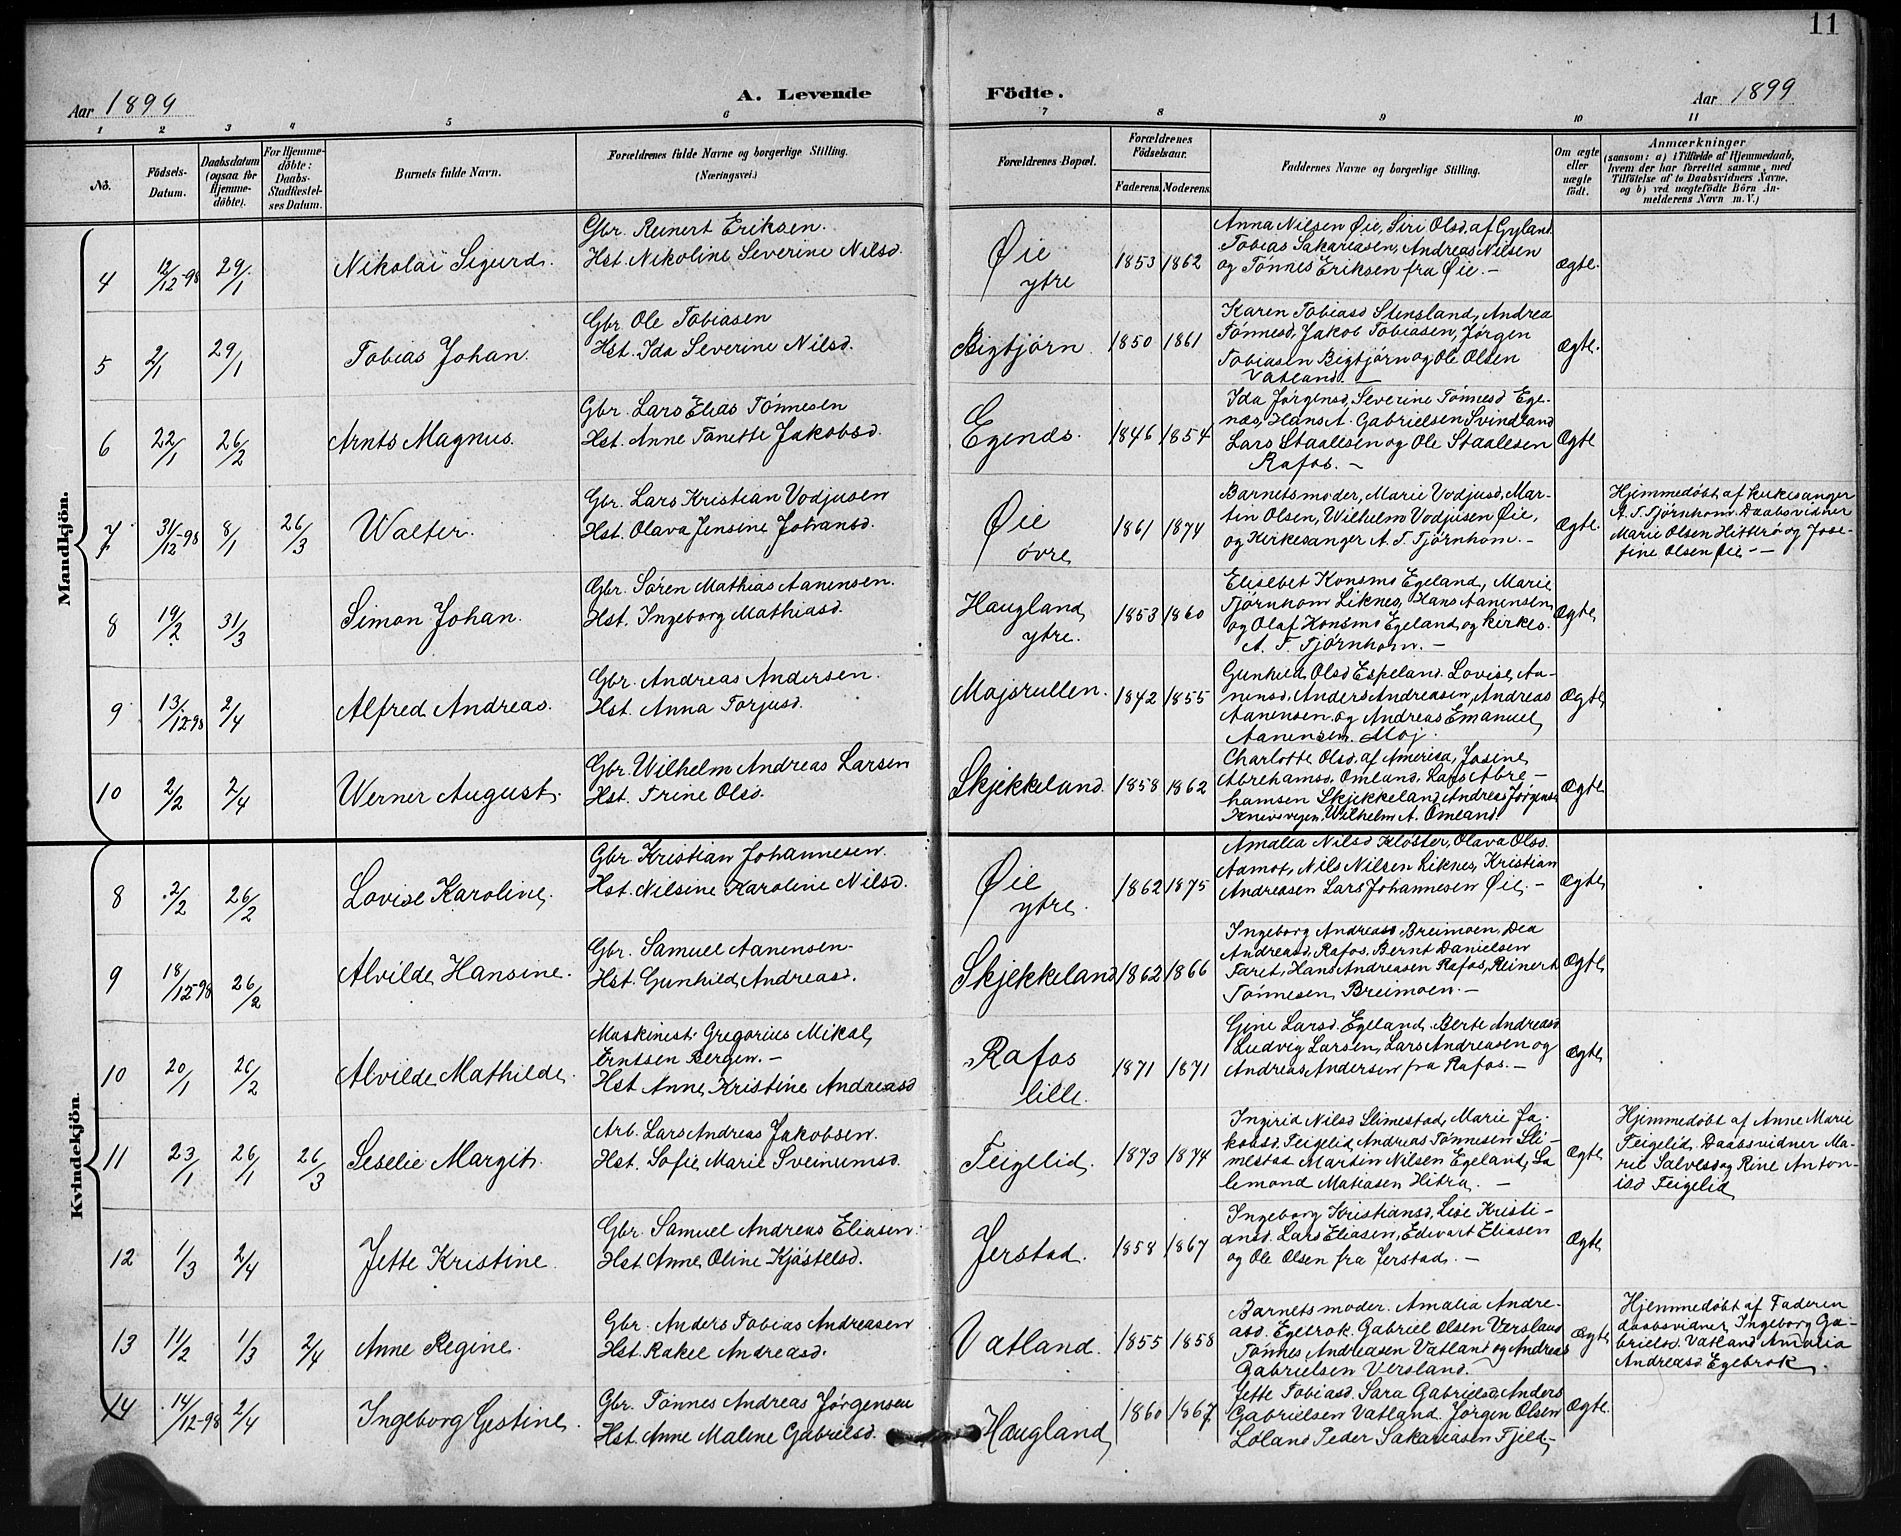 11
Aar 1899
A. Levende
Födte.
Aar 1899
1 2 3 4 5 6 7 8 9 10 11
No.
Födsels-
Datum.
Daabsdatum
(ogsaa for
Hjemme-
döbte).
For Hjemme-
döbte:
Daabs-
Stadfæstel-
ses Datum.
Barnets fulde Navn.
Forældrenes fulde Navne og borgerlige Stilling.
(Næringsvei.)
Forældrenes Bopæl.
Forældrenes
Födselsaar.
Faderens.
Moderens.
Faddernes Navne og borgerlige Stilling.
Om ægte
eller
uægte
födt.
Anmærkninger
(saasom: a) i Tilfælde af Hjemmedaab,
hvem der har forrettet samme, med
Tilföielse af to Daabsvidners Navne,
og b) ved uægtefödte Börn An-
melderens Navn m. V.)
Mandkjön.
4 12/12-98 29/1 Nikolai Sigurd.
Gbr. Reinert Eriksen.
Hst. Nikoline Severine Nilsd.
Øie
ytre
1853 1862
Anna Nilsen Øie, Siri Olsd. af Gyland
Tobias Sakariasen, Andreas Nilsen
og Tønnes Eriksen fra Øie. –
Ægte.
5 2/1 29/1 Tobias Johan.
Gbr. Ole Tobiasen
Hst. Ida Severine Nilsd.
Bigtjørn 1850 1861
Karen Tobiasd Stensland, Andrea
Tønnesd, Jakob Tobiasen, Jørgen
Tobiasen Bigtjørn og Ole Olsen
Vatland. –
Ægte.
6 22/1 26/2 Arnts Magnus.
Gbr. Lars Elias Tönnesen
Hst. Anne Tonette Jakobsd.
Egenæs. 1846 1854
Ida Jørgensd, Severine Tønnesd Ege-
næs, Hans A. Gabrielsen Svindland
Lars Staalesen og Ole Staalesen
Rafos. –
Ægte
7 31/12-98 8/1 26/3 Walter.
Gbr. Lars Kristian Vodjusen
Hst. Olava Jensine Johansd.
Øie
øvre
1861 1874
Barnetsmoder, Marie Vodjusd, Mar-
tin Olsen, Wilhelm Vodjusen Øie,
og Kirkesanger A. T. Tjørnhom. –
Ægte.
Hjemmedøbt af kirkesanger
A. T. Tjørnhom. Daabsvidner
Marie Olsen Hitterø og Jose-
fine Olsen Øie – –
8 19/2 31/3 Simon Johan.
Gbr. Søren Mathias Aanensen.
Hst. Ingeborg Mathiasd.
Haugland
ytre.
1853 1860
Elisebet Konsmo Egeland, Marie
Tjørnhom Liknes, Hans Aanensen
og Olaf Konsmo Egeland og kirkes.
A. T. Tjørnhom. –
Ægte
9 13/12-98 2/4 Alfred Andreas.
Gbr. Andreas Andersen.
Hst. Anna Torjusd.
Mojsrullen. 1842 1855
Gunhild Olsd Espeland. Lovise Aa-
nensd, Anders Andreasen, Andreas
Aanensen og Andreas Emanuel
Aanensen Moj.
Ægte
10 2/2 2/4 Werner August.
Gbr. Wilhelm Andreas Larsen
Hst. Trine Olsd.
Skjekkeland. 1858 1862
Charlotte Olsd. af Amerika, Josine
Abrehamsd, Omland, Lars Abre –
hamsen Skjekkeland, Andreas Jørgens
Wilhelm A. Omland
Ægte
Kvindekjön.
8 2/2 26/2 Lovise Karoline.
Gbr. Kristian Johannesen.
Hst. Nilsine Karoline Nilsd.
Øie
ytre.
1862 1875
Amalia Nilsd Kløster, Olava Olsd.
Aamot, Nils Nilsen Liknes, Kristian
Andreasen Lars Johannesen Øie. –
Ægte
9 18/12-98 26/2 Alvilde Hansine.
Gbr. Samuel Aanensen.
Hst. Gunhild Andreasd.
Skjekkeland 1862 1866
Ingeborg Andreasd. Breimoen, Dea
Andreasd, Rafos, Bernt Danielsen
Faret, Hans Andreasen Rafos, Reinert
Tønnesen Breimoen. –
Ægte
10 20/1 26/2 Alvilde Mathilde.
Maskinest. Gregorius Mikal
Erntsen Bergen. –
Hst Anne Kristine Andreasd
Rafos
lille.
1871 1871
Gine Larsd. Egeland, Berte Andreasd
Ludvig Larsen, Lars Andreasen og
Andreas Andersen fra Rafos. –
Ægte
11 23/1 26/1 26/3 Seselie Margit.
Arb. Lars Andreas Jakobsen.
Hst. Sofie Marie Sveinumsd.
Feigelid. 1873 1874
Ingrid Nilsd Slimestad, Marie Ja-
kobsd. Feigelid, Andreas Tønnesen Sli-
mestad Martin Nilsen Egeland, Sa-
lemond Matiasen Hitra. –
Ægte
Hjemmedøbt af Anne Marie
Feigelid. Daabsvidner Ma-
rie Salvesd og Rine Anton-
isd Feigelid
12 1/3 2/4 Jette Kristine.
Gbr. Samuel Andreas Eliasen.
Hst. Anne Oline Kjøstelsd.
Jerstad. 1858 1867
Ingeborg Kristiansd, Lise Kristi-
ansd. Lars Eliasen, Edvart Eliasen
og Ole Olsen fra Jerstad. –
Ægte
13 11/2 1/3 2/4 Anne Regine.
Gbr. Anders Tobias Andreasen
Hst. Rakel Andreasd.
Vatland. 1855 1858
Barnets moder. Amalia Andre-
asd. Egebrok. Gabriel Olsen Versland
Tønnes Andreasen Vatland og Andreas
Gabrielsen Versland.
Ægte
Hjemmedøbt af Faderen
daabsvidner Ingeborg Ga-
brielsd. Vatland Amalia
Andreasd Egebrok.
14 14/12-98 2/4 Ingeborg Gestine.
Gbr. Tönnes Andreas Jørgensen
Hst. Anne Malene Gabrielsd.
Haugland 1860 1867
Jette Tobiasd. Sara Gabrielsd, Anders
Gabrielsen Vatland. Jørgen Olsen
Løland Peder Sakariasen Fjeld –
Ægte.